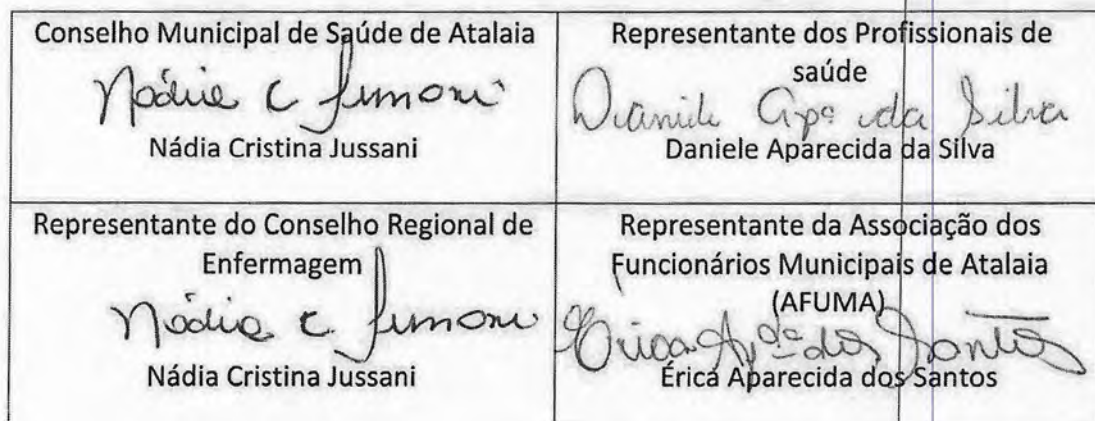 Conselho Municipal de Saúde de Atalaia
Nádia C Jussani
Nádia Cristina Jussani
Representante dos Profissionais de
saúde
Daniele Apª da Silva
Daniele Aparecida da Silva
Representante do Conselho Regional de
Enfermagem
Nádia C. Jussani
Nádia Cristina Jussani
Representante da Associação dos
Funcionários Municipais de Atalaia
(AFUMA)
Érica Apda dos Santos
Érica Aparecida dos Santos